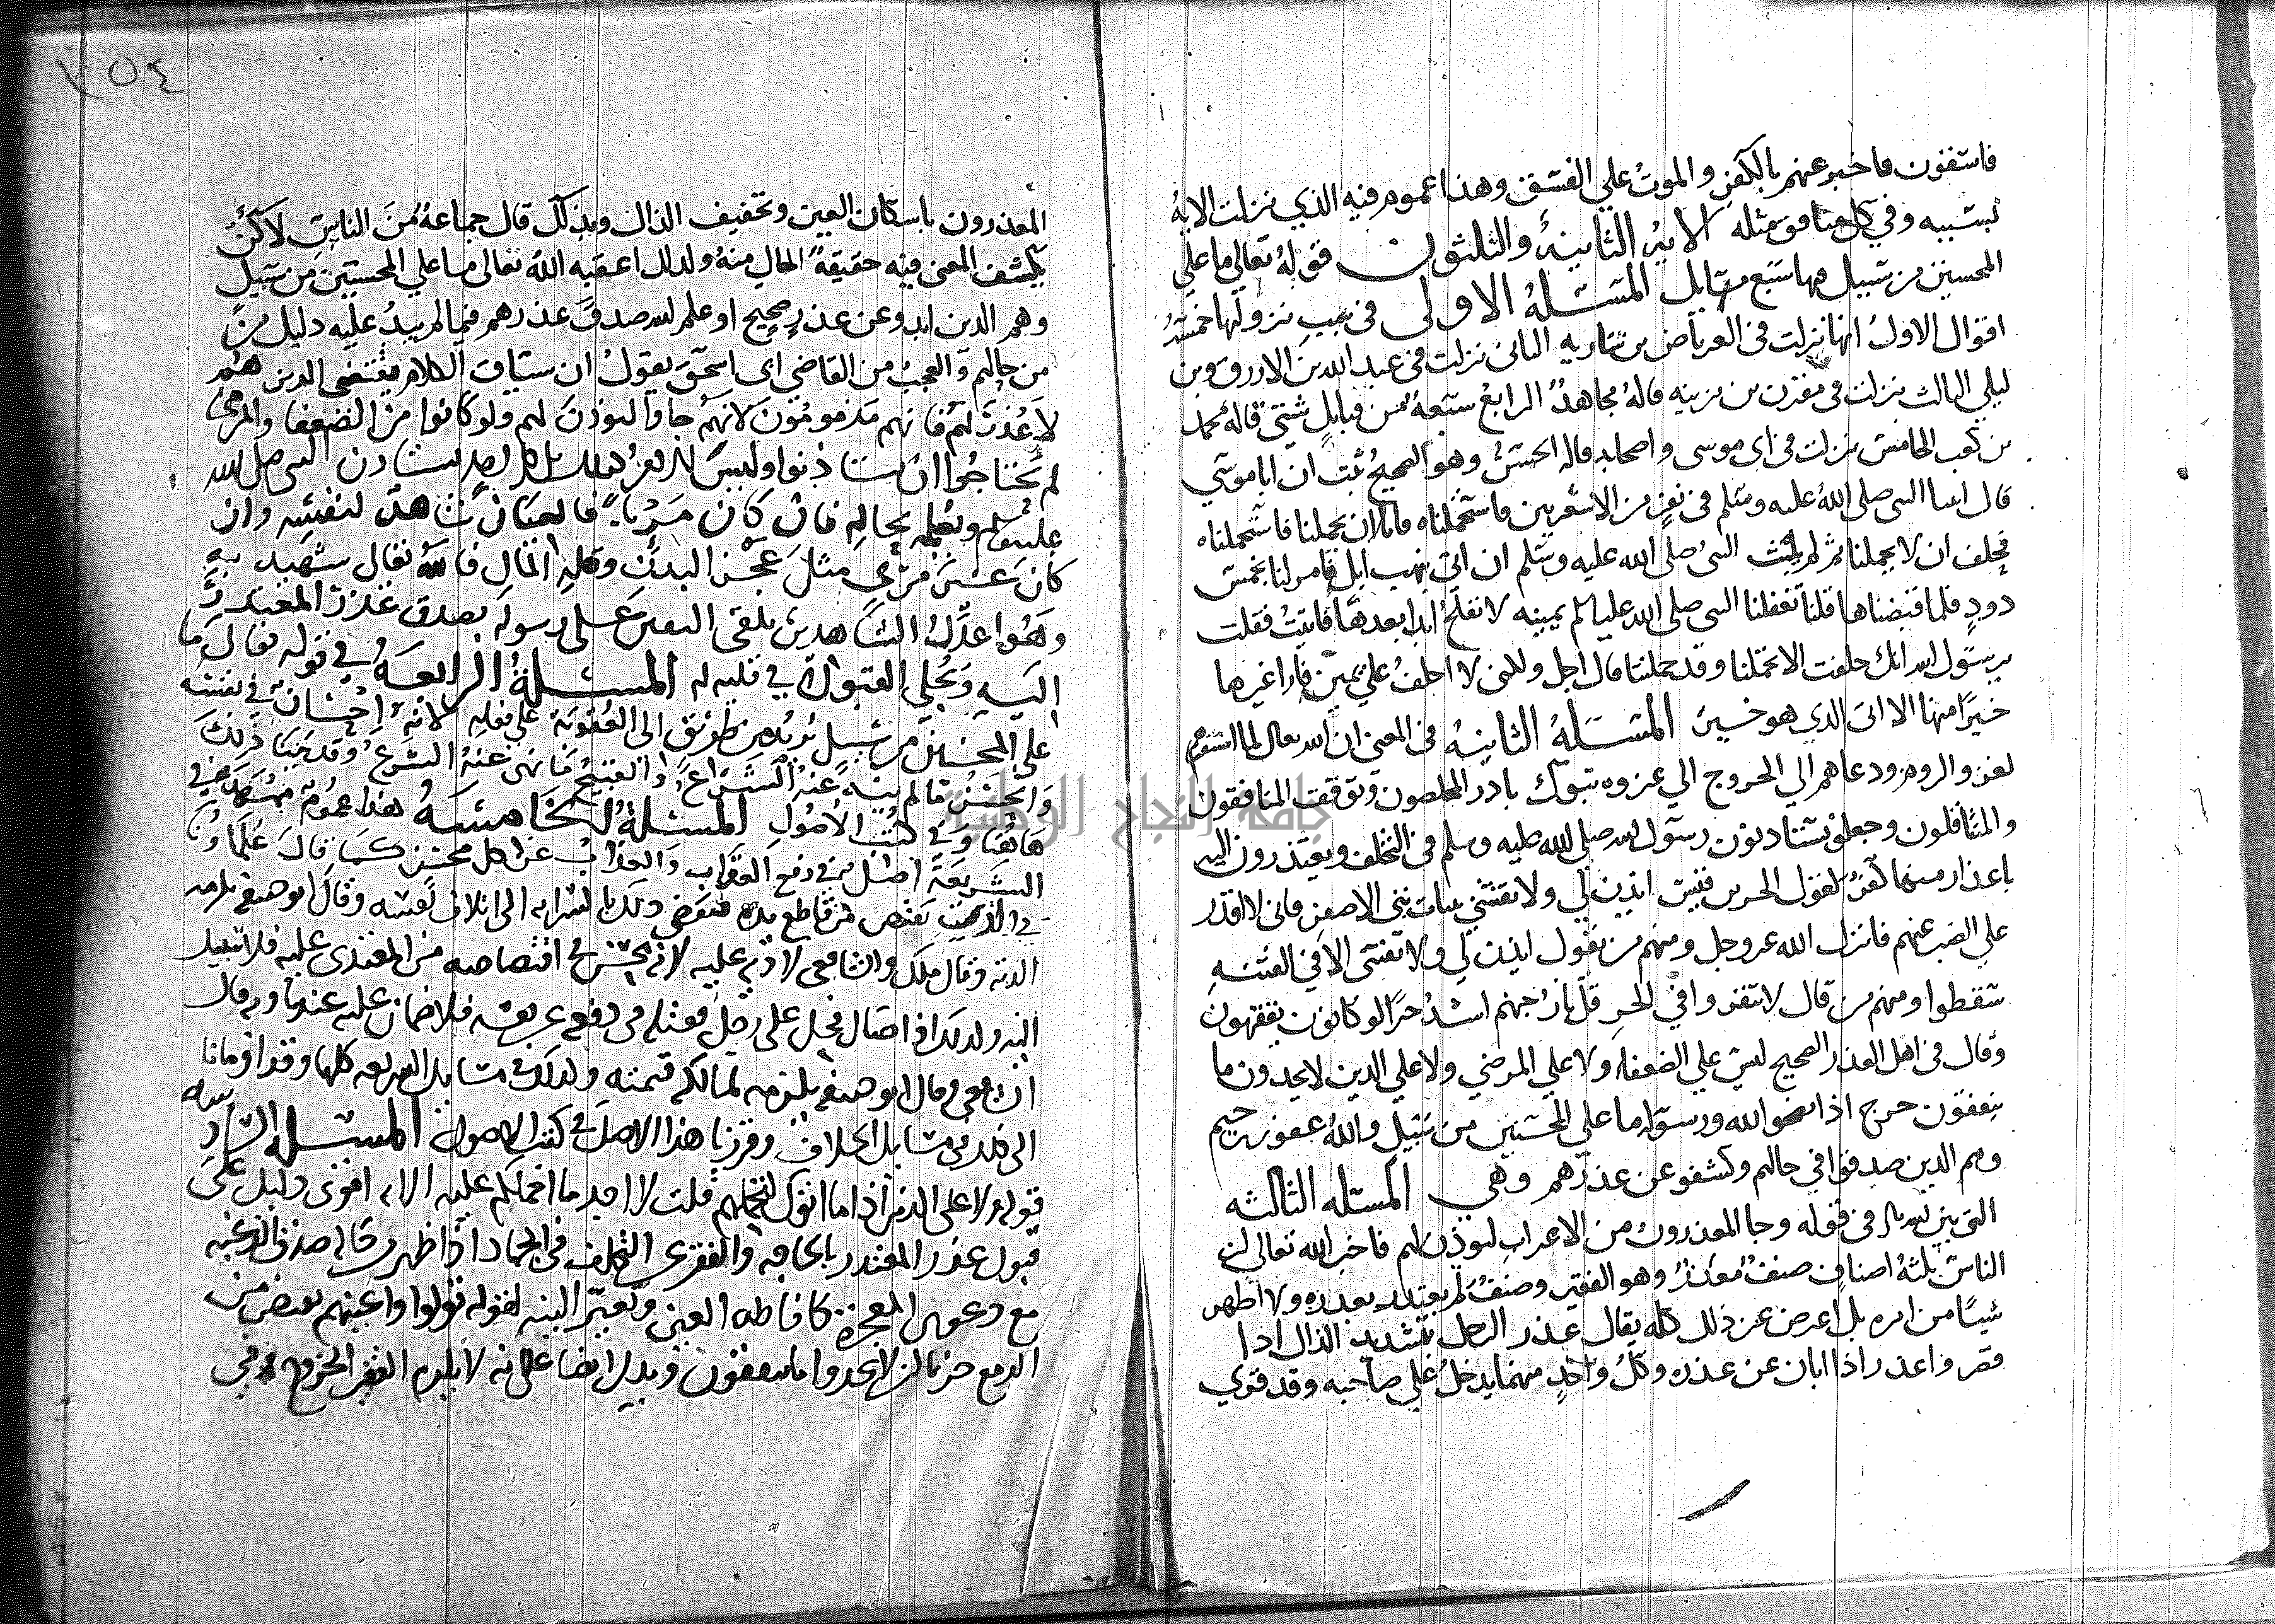 فاسقون فاخبر عنهم بالكفر والموت علي الفسق وهذا عموم فيه الذي نزلت الاية
بسببه وفي كل منافق مثله الاية الثانية والثلثون قوله تعالي ما علي
المحسنين من سبيل فيها سبع مسايل المسئلة الاولى في سبب نزولها خمسة
اقوال الاول انها نزلت في العرباض بن سارية الثاني نزلت في عبد الله بن الازرق وبن
ليلي الثالث نزلت في مقرن من مزينه قاله مجاهد الرابع سبعة من قبايل شتي قاله محمد
بن كعب الخامس نزلت في ابي موسي واصحابه قاله الحسن وهو الصحيح ثبت ان ابا موسي
قال اتينا النبي صلى الله عليه وسلم في نفر من الاشعريين فاستحملناه فابا ان يحملنا فاستحملناه
فحلف ان لا يحملنا ثم لم يلبث النبي صلى الله عليه وسلم ان اتي بنهب ابل فامر لنا بخمس
ذود فلما قبضناها قلنا تغفلنا النبي صلى الله عليه وسلم يمينه لا نفلح ابدا بعدها فاتيت فقلت
يرسول الله انك حلفت الا تحملنا وقد حملتنا قال اجل ولكني لا احلف علي يمين فارا غيرها
خيرا منها الا اتي الذي هو خير المسئلة الثانية في المعنى ان الله تعالى لما استنفرهم
لغزو الروم ودعاهم الي الخروج الي غزوه تبوك بادر المخلصون وتوقفت المنافقون
والمتثاقلون وجعلو يستاذنون رسول الله صلى الله عليه وسلم في التخلف ويعتذرون اليه
باعذار منها كفر كقول الحر بن قيس ايذن لي ولا تفتني ببنات بني الاصفر فاني لا اقدر
علي الصبر عنهم فانزل الله عز وجل ومنهم من يقول ايذن لي ولا تفتني الا في الفتنه
سقطوا ومنهم من قال لا تنفروا في الحر قل نار جهنم اشد حرا لو كانون يفقهون
وقال في اهل العذر الصحيح ليس علي الضعفا ولا علي المرضي ولا علي الذين لا يجدون ما
ينفقون حرج اذا نصحو الله ورسوله ما علي المحسنين من سبيل والله غفور رحيم
وهم الذين صدقوا في حالهم وكشفو عن عذرهم وهي المسئله الثالثه
التي بين الله في قوله وجا المعذرون من الاعراب ليوذن لهم فاخبر الله تعالى ان
الناس ثلثة اصناف صنف معذر وهو الفقير وصنف لم يعتذر بعذره ولا اظهر
شيئا من امره بل اعرض عن ذلك كله يقال عذر الرجل بتشديد الذال اذا
قصر واعذر اذا ابان عن عذره وكل واحد منهما يدخل علي صاحبه وقد قري
٢٥٤
المعذرون باسكان العين وتخفيف الذال وبذلك قال جماعة من الناس لاكن
يكشف المعنى فيه حقيقة الحال منه ولذلك اعقبه الله تعالى ما علي المحسنين من سبيل
وهم الذين ابدو عن عذر صحيح او علم الله صدق عذرهم فيما لم يبد عليه دليل من
من حالهم والعجب من القاضي ابي اسحق يقول ان سياق الكلام يقتضي الذين هم
لا عذر لهم فانهم مذمومون لانهم جاوا ليوذن لهم ولو كانوا من الضعفا والمرضي
لم يحتاجوا ان يستاذنوا وليس الامر كذلك بل كل احد يستاذن النبي صلى الله
عليه وسلم ويعلمه بحاله فان كان مرئيا فالعيان شاهد لنفسه وان
كان غير مرئي مثل عجز البدن وقله المال فالله تعالى شهيد به
وهو اعدل الشاهدين يلقي اليقين علي رسوله بصدق عذر المعتذر
اليه ويجلي القبول في قلبه له المسئلة الرابعة في قوله تعالى ما
علي المحسنين من سبيل يريد من طريق الي العقوبة علي فعله لانه احسان في نفسه
والحسن ما لم ينه عنه الشرع والقبيح ما نهى عنه الشرع وقد بينا ذلك
هاهنا وفي كتب الاصول المسئلة الخامسة هذا عموم ممهد في
الشريعة اصل في رفع العقاب والعتاب عن كل محسن كما قال علماونا
في الذي يقتص من قاطع يده فيفضي ذلك بالسرايه الى اتلاف نفسه وقال ابو حنيفه يلزمه
الديه وقال ملك والشافعي لا دية عليه لانه محسن في اقتصاصه من المعتدي عليه فلا سبيل
اليه ولذلك اذا صال فحل على رجل فقتله في دفعه عن نفسه فلا ضمان عليه عندنا وبه قال
الشافعي وقال ابو حنيفه يلزمه لمالكه قيمته وكذلك في مسايل الشريعه كلها وقد اومانا
الى ذلك في مسايل الخلاف وقررنا هذا الاصل في كتب الاصول المسئله السادسه
قوله ولا على الذين اذا ما اتوك لتحملهم قلت لا اجد ما احملكم عليه الايه اقوى دليل على
قبول عذر المعتذر بالحاجه والفقر عن التخلف في الجهاد اذا ظهر من حاله صدق الرغبه
مع دعوى المعجزه كافاضه العين وتغير الهيئه لقوله تولوا واعينهم تفيض من
الدمع حزنا ان لا يجدوا ما ينفقون ويدل ايضا على انه لا يلزم الفقير الخروج في